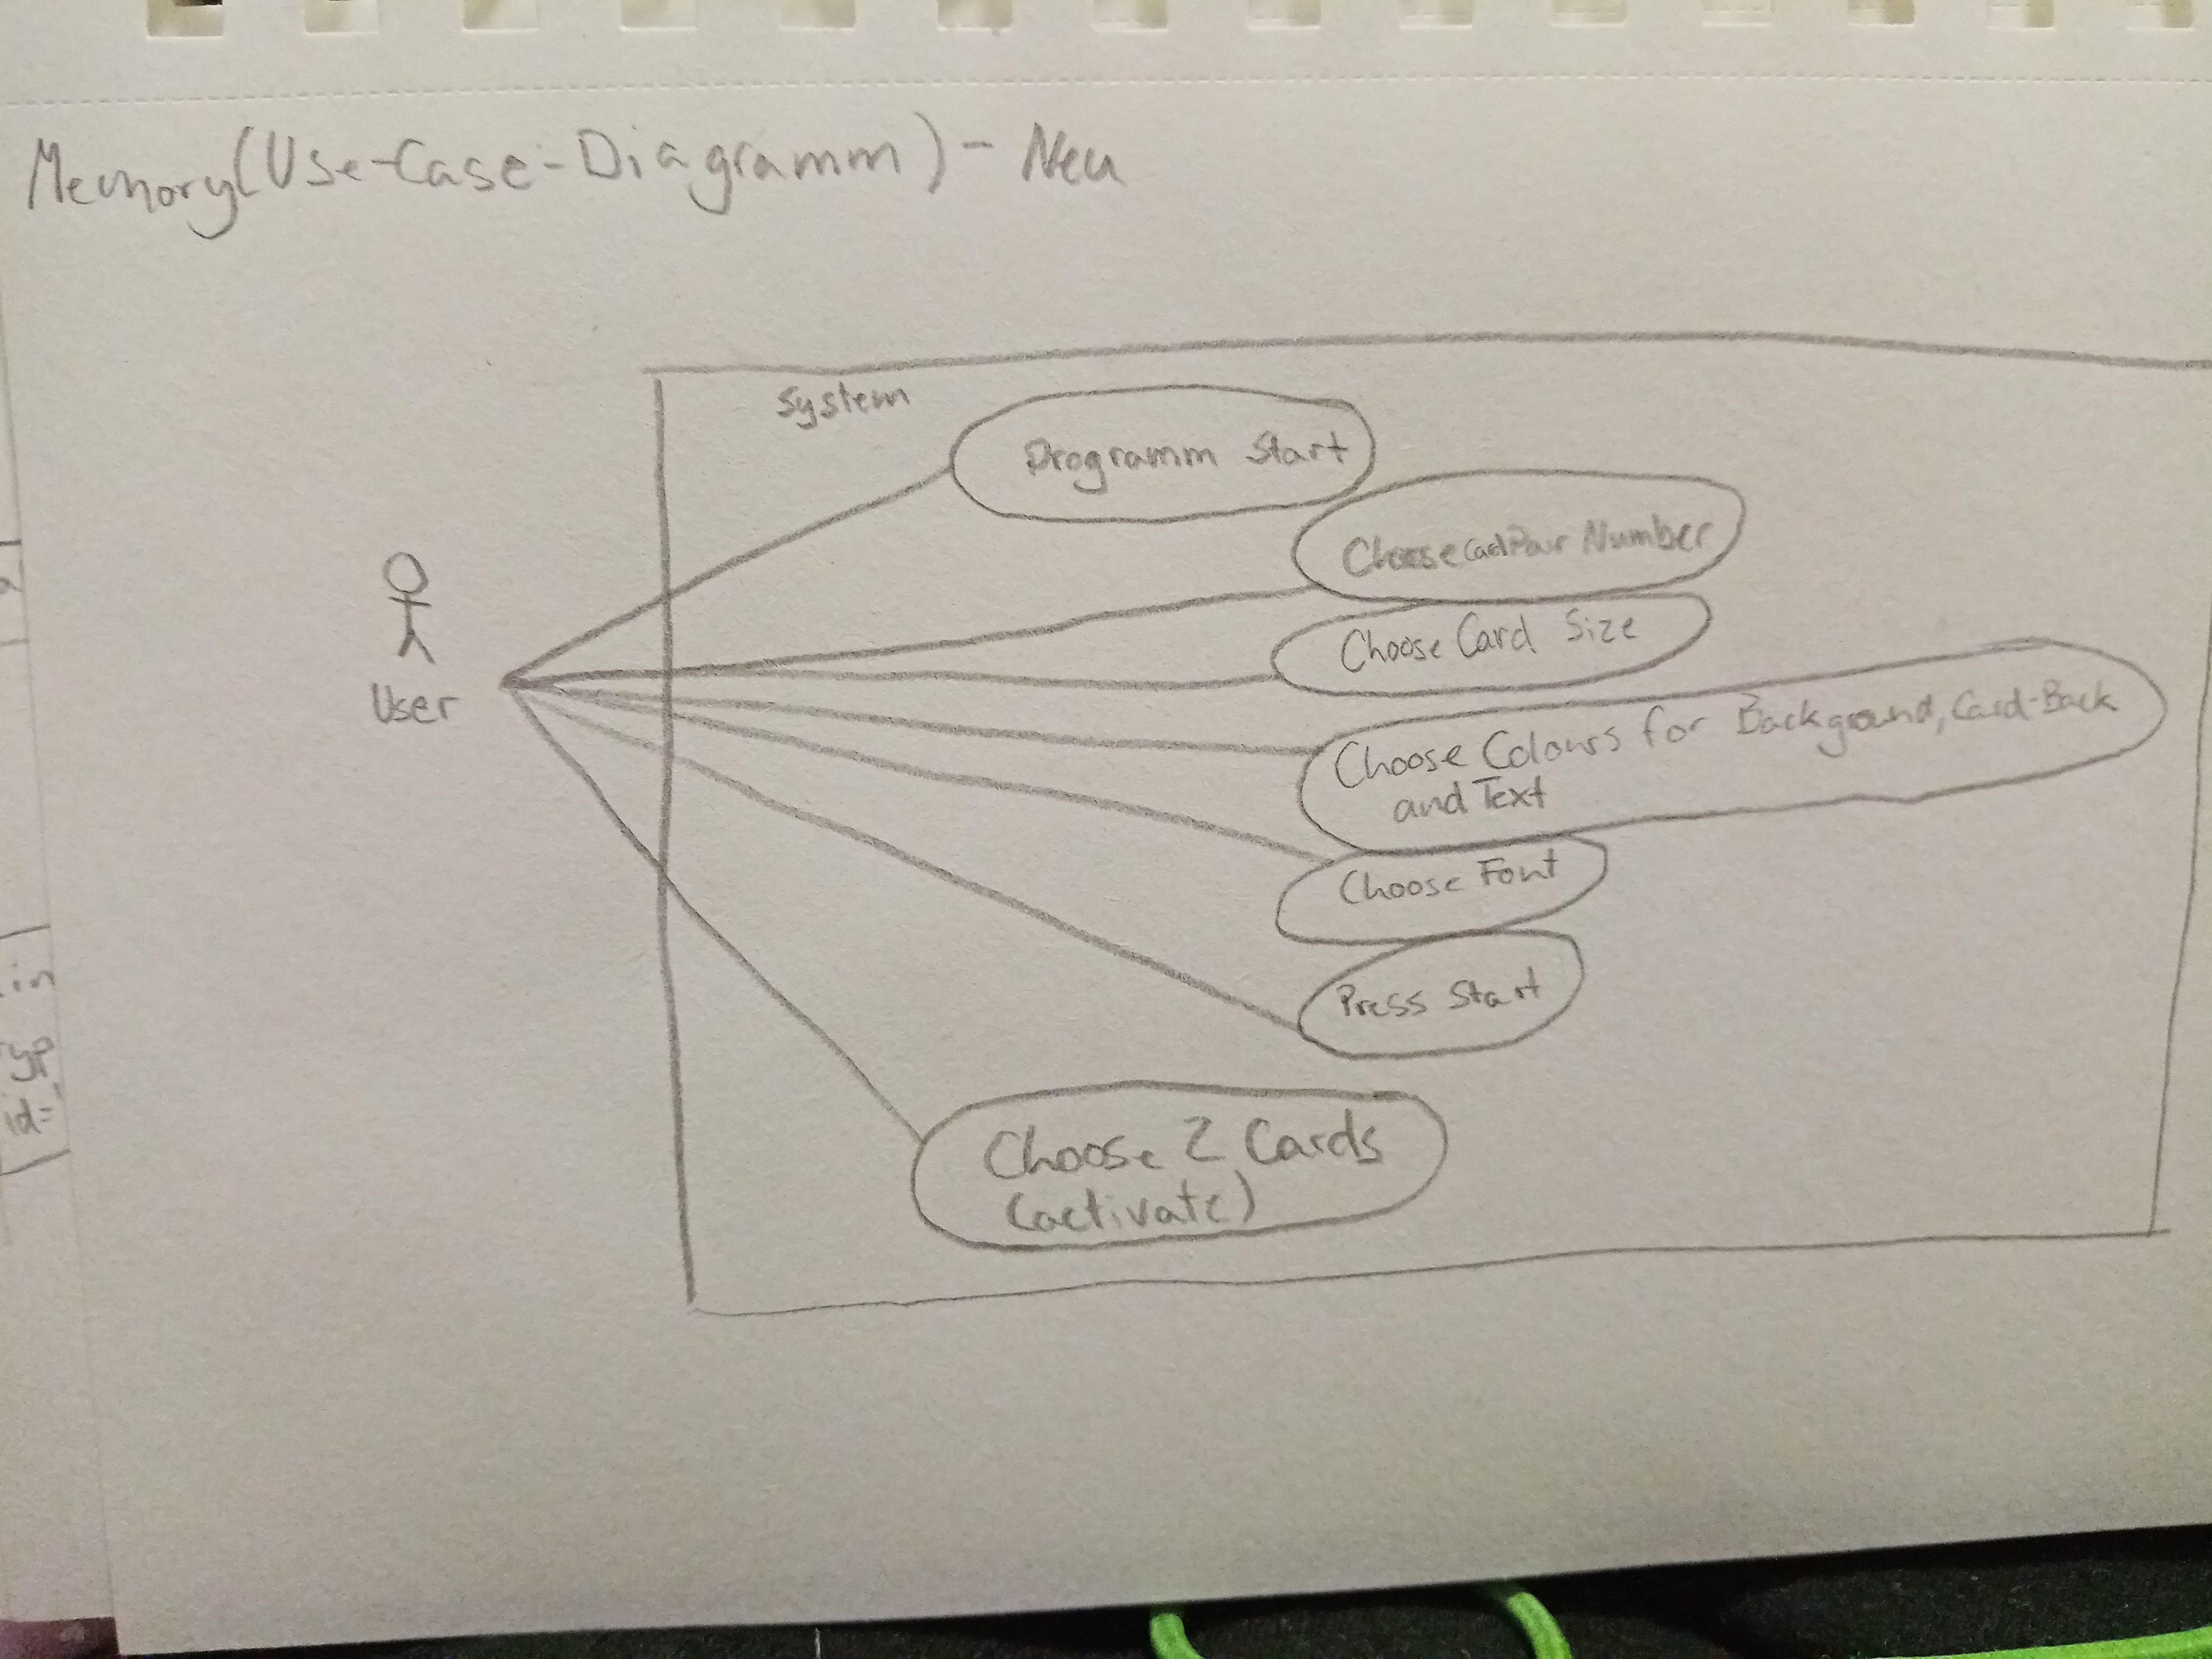 Memory(Use-Case-Diagramm) - Neu
System
Programm Start
Choose Card Pair Number
Choose Card Size
User
Choose Colours for Background, Card-Back
and Text
Choose Font
Press Start
Choose 2 Cards
(activate)
in
yp
id=